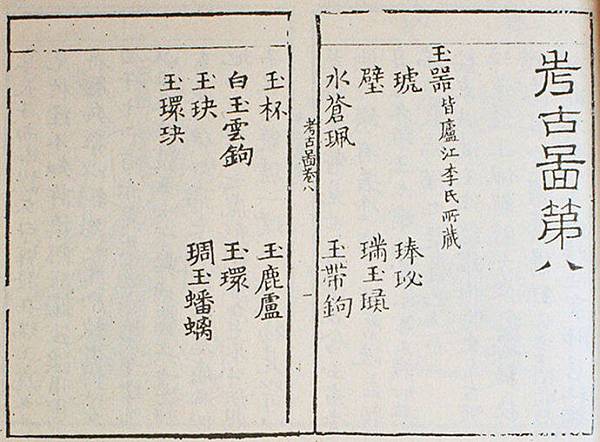 考古圖第八
玉器 皆廬江李氏所藏
琥 琫珌
璧 瑞玉
水蒼珮 玉帶鉤
考古圖卷八 一
玉杯 玉鹿盧
白玉雲鉤 玉環
玉玦 琱玉蟠螭
玉環玦